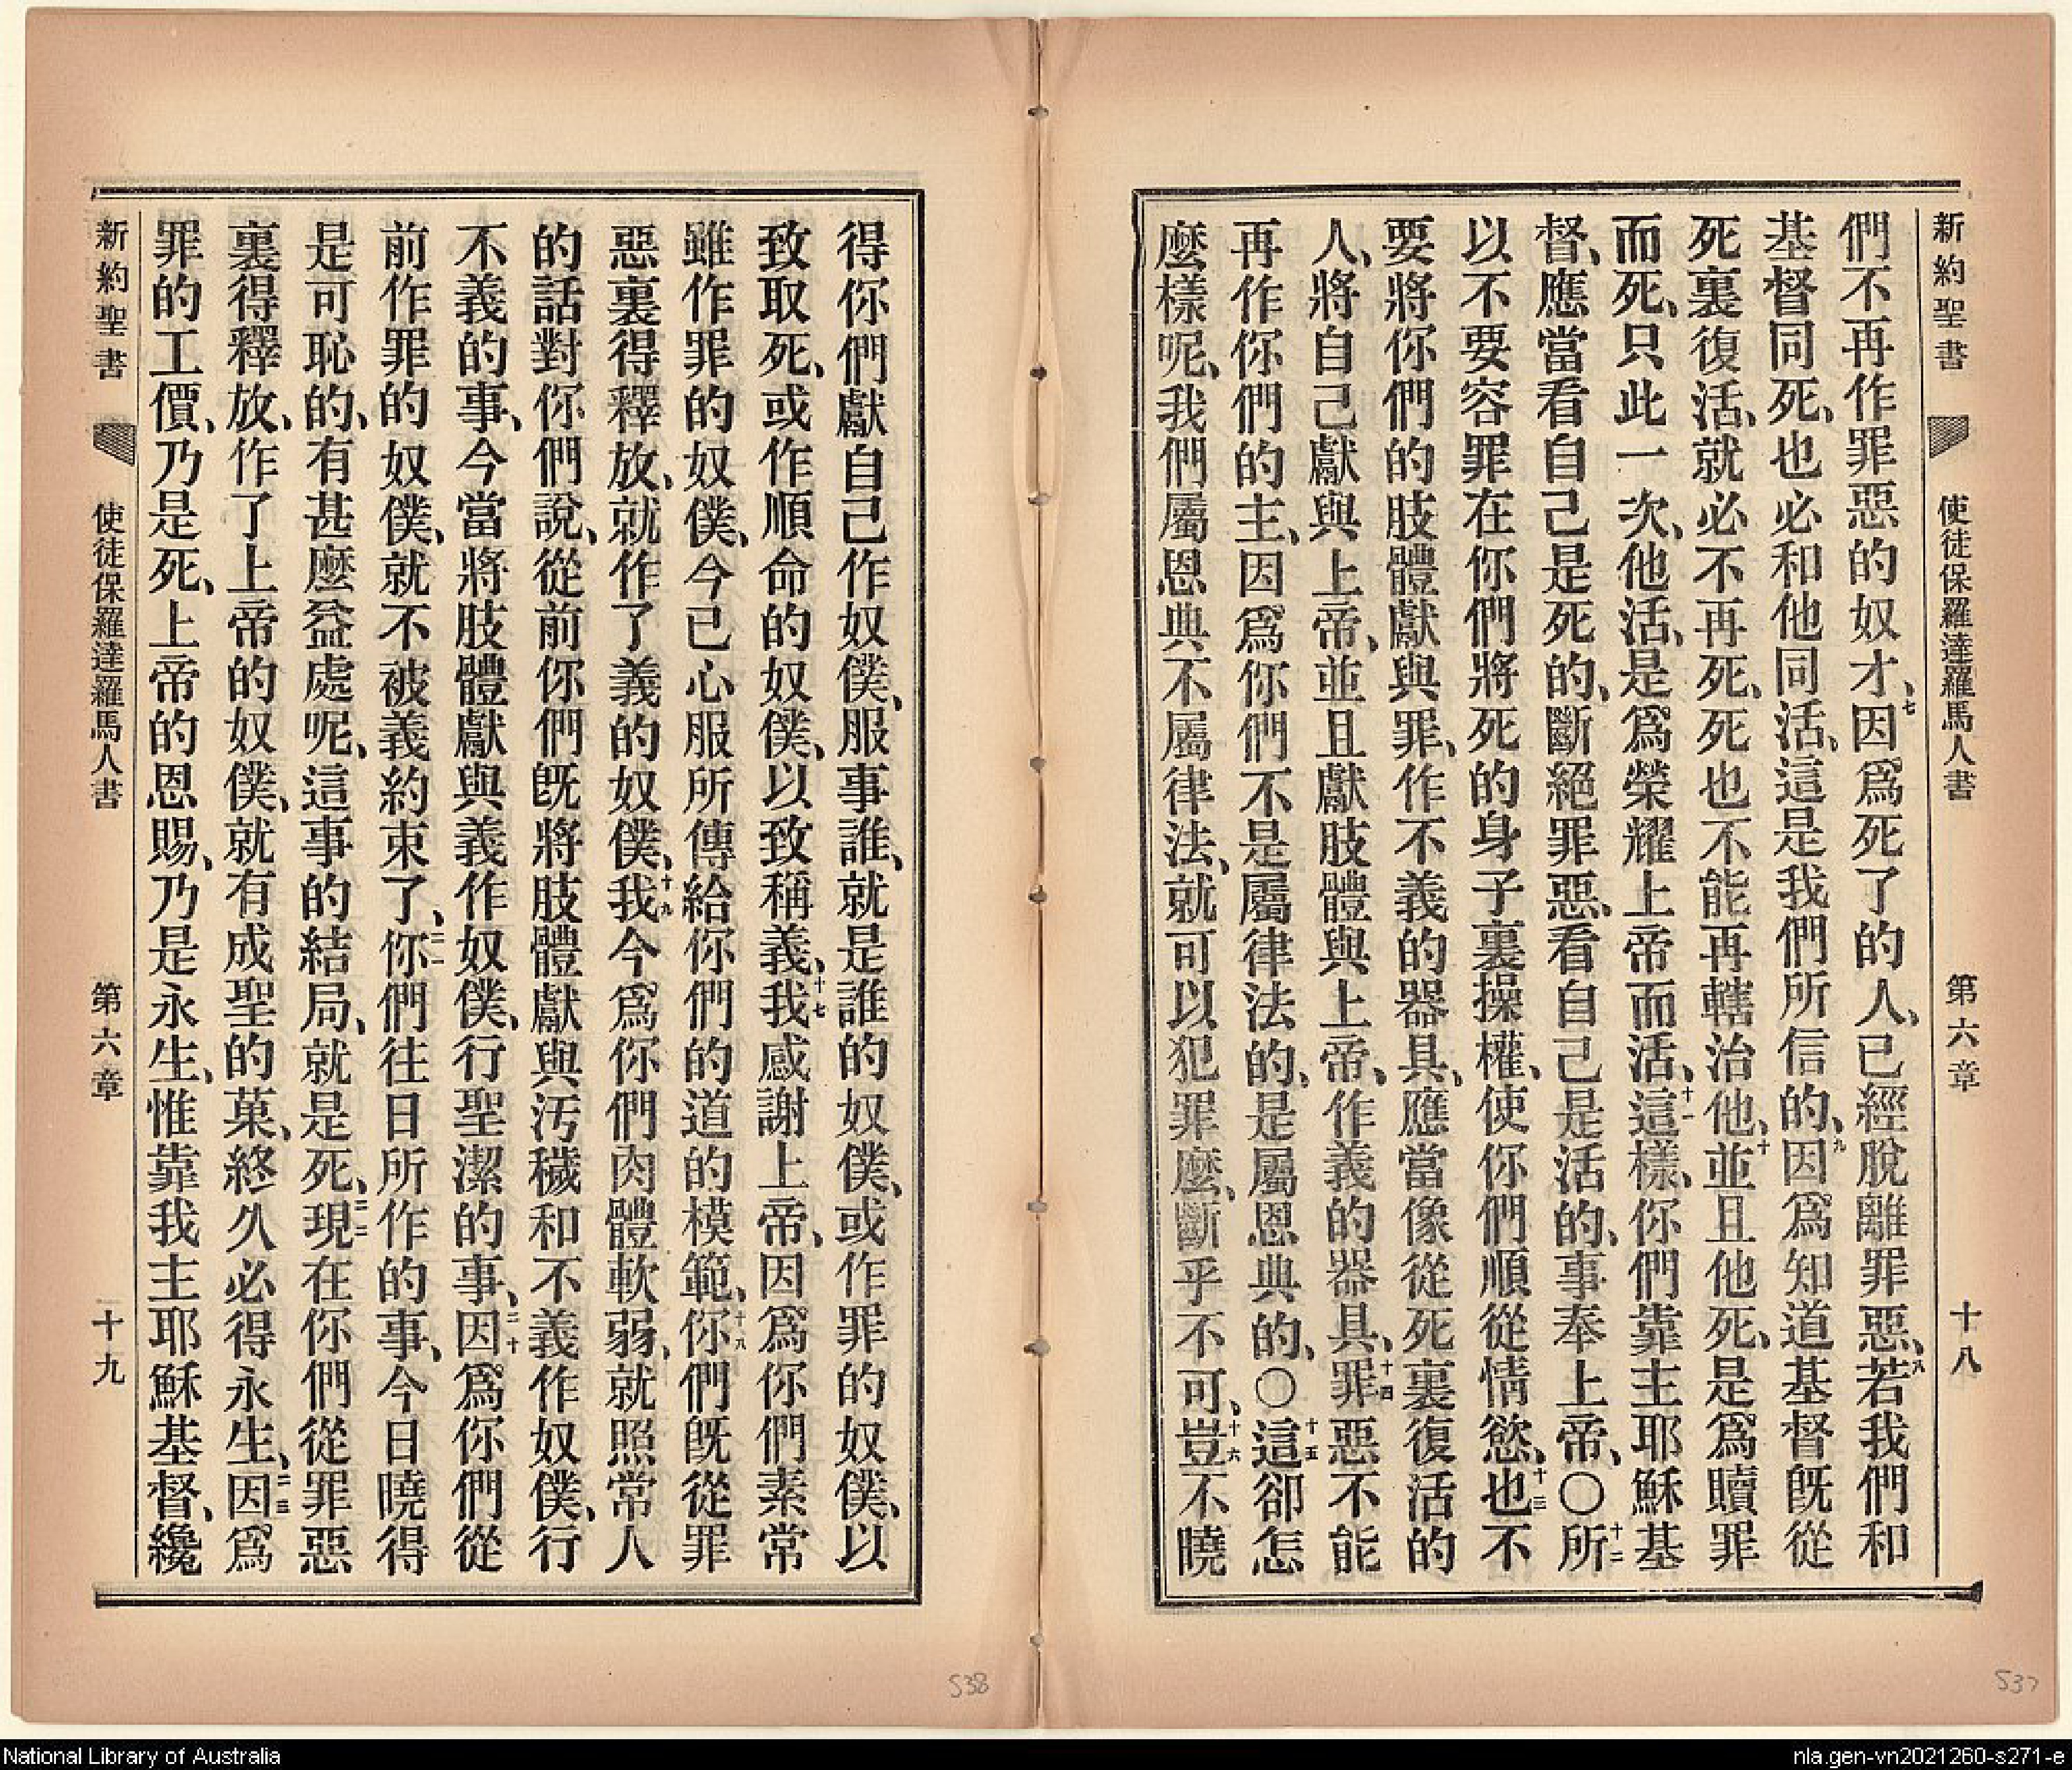 新約聖書 使徒保羅達羅馬人書 第六章 十八
們不再作罪惡的奴才、七因爲死了的人、已經脫離罪惡、八若我們和
基督同死、也必和他同活、這是我們所信的、九因爲知道基督既從
死裏復活、就必不再死、死也不能再轄治他、十並且他死、是爲贖罪
而死、只此一次、他活、是爲榮耀上帝而活、十一這樣、你們靠主耶穌基
督、應當看自己是死的、斷絕罪惡、看自己是活的、事奉上帝、〇十二所
以不要容罪在你們將死的身子裏操權、使你們順從情慾、十三也不
要將你們的肢體獻與罪、作不義的器具、應當像從死裏復活的
人、將自己獻與上帝、並且獻肢體與上帝、作義的器具、十四罪惡不能
再作你們的主、因爲你們不是屬律法的、是屬恩典的、〇十五這卻怎
麼樣呢、我們屬恩典不屬律法、就可以犯罪麼、斷乎不可、十六豈不曉
得你們獻自己作奴僕、服事誰、就是誰的奴僕、或作罪的奴僕、以
致取死、或作順命的奴僕、以致稱義、十七我感謝上帝、因爲你們素常
雖作罪的奴僕、今已心服所傳給你們的道的模範、十八你們既從罪
惡裏得釋放、就作了義的奴僕、十九我今爲你們肉體軟弱、就照常人
的話對你們說、從前你們既將肢體獻與污穢和不義作奴僕、行
不義的事、今當將肢體獻與義作奴僕、行聖潔的事、二十因爲你們從
前作罪的奴僕、就不被義約束了、二一你們往日所作的事、今日曉得
是可恥的、有甚麼益處呢、這事的結局、就是死、二二現在你們從罪惡
裏得釋放、作了上帝的奴僕、就有成聖的菓、終久必得永生、二三因爲
罪的工價、乃是死、上帝的恩賜、乃是永生、惟靠我主耶穌基督、纔
新約聖書 使徒保羅達羅馬人書 第六章 十九
538
537
National Library of Australia
nla.gen-vn2021260-s271-e